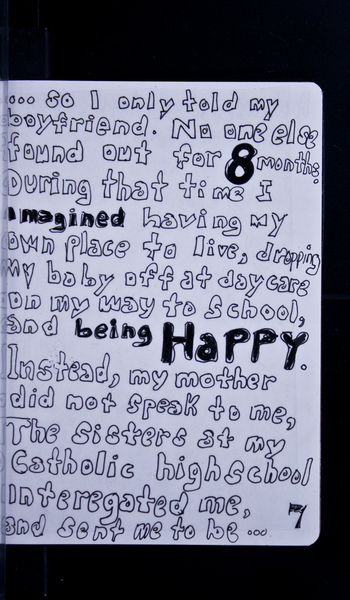 ... so I only told my
boyfriend. No one else
found out for 8 months.
During that time I
imagined having my
own place to live, dropping
my baby off at daycare
on my way to school,
and being HAPPY.
Instead, my mother
did not speak to me,
The sisters at my
Catholic high school
interegated me,
and sent me to be ...
7